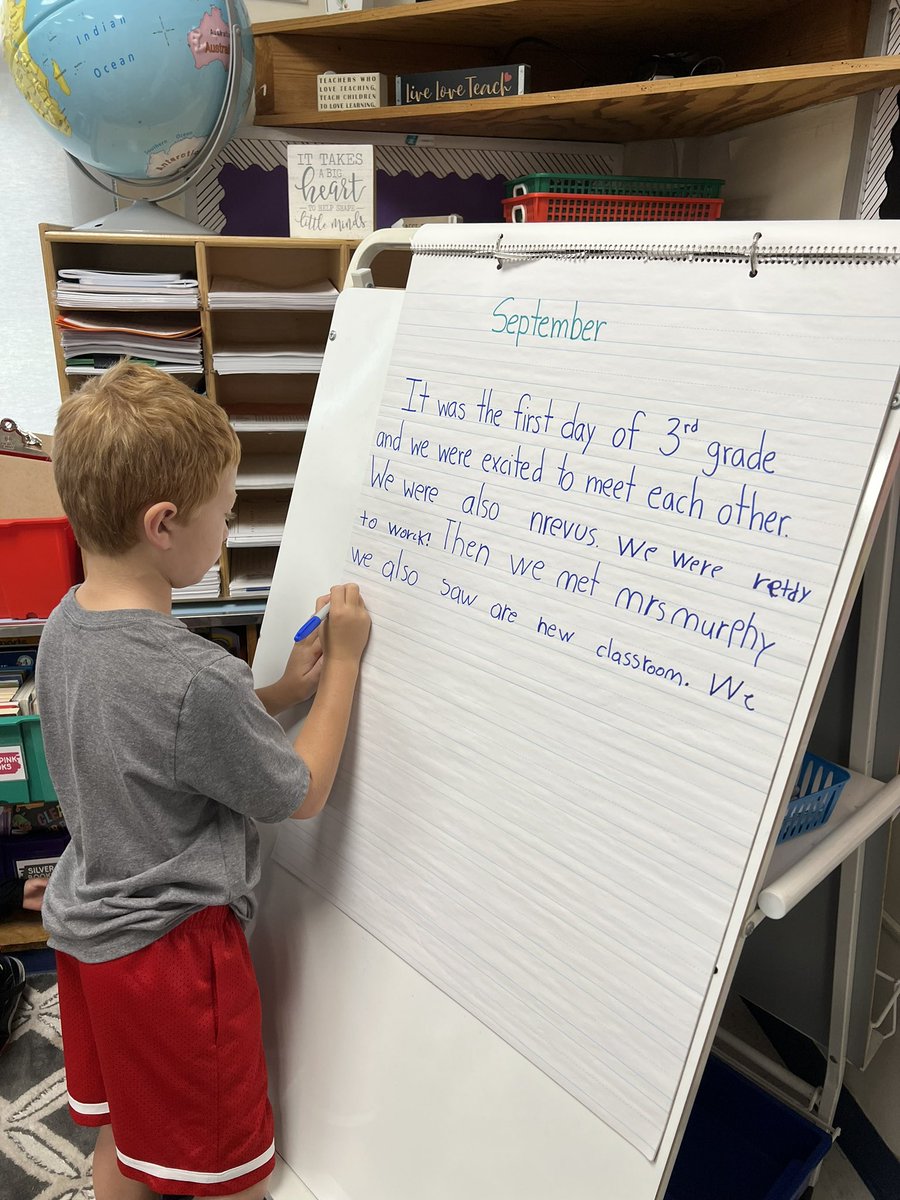 Indian
Ocean
Australia
Southern Ocean
Antarctica
TEACHERS WHO
LOVE TEACHING,
TEACH CHILDREN
TO LOVE LEARNING
Live Love Teach
IT TAKES
A BIG
heart
TO HELP SHAPE
little minds
September
It was the first day of 3rd grade
and we were excited to meet each other.
We were also nrevus. We were retdy
to worck! Then we met mrs murphy
we also saw are new classroom. We
PINK
SILVER